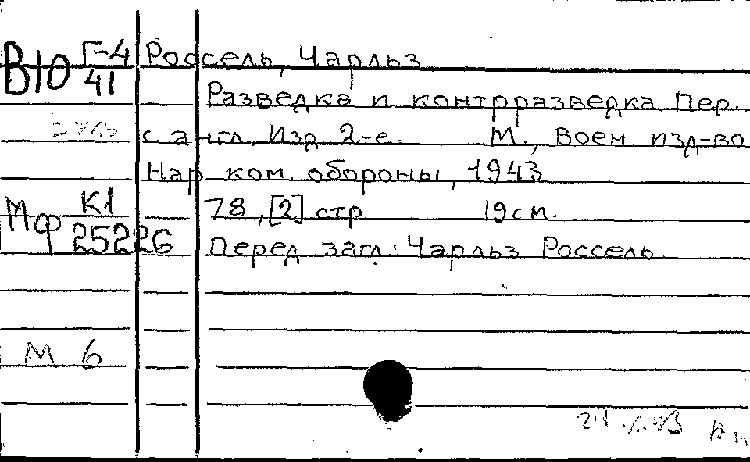 В10 Г-4 Россель, Чарльз
41
Разведка и контрразведка Пер.
с англ. Изд 2-е. М., Воен изд-во
Нар ком. обороны, 1943
К1 78, [2] стр 19 см.
Мф 25226 Перед загл: Чарльз Россель.
М 6